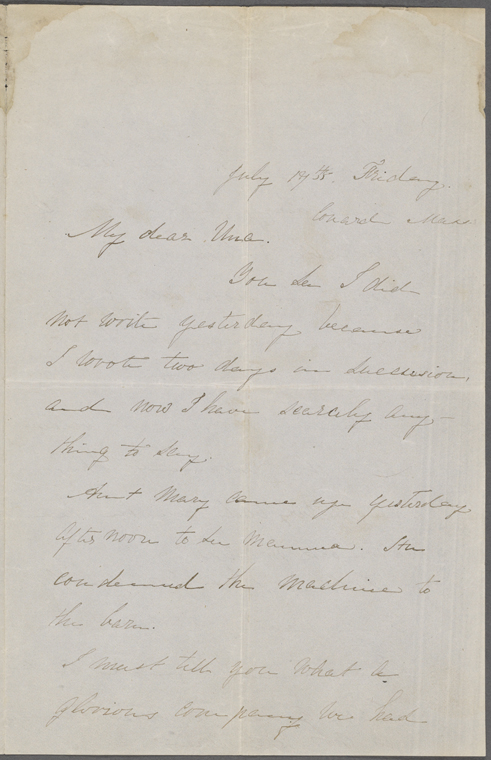 July 19th. Friday.
Concord Mass
My dear Una.
You see I did
not write yesterday because
I wrote two days in succession,
and now I have scarcely any-
thing to say.
Aunt Mary came up yesterday
afternoon to see Mamma. She
condemned the machine to
the barn.
I must tell you what a
glorious company we had